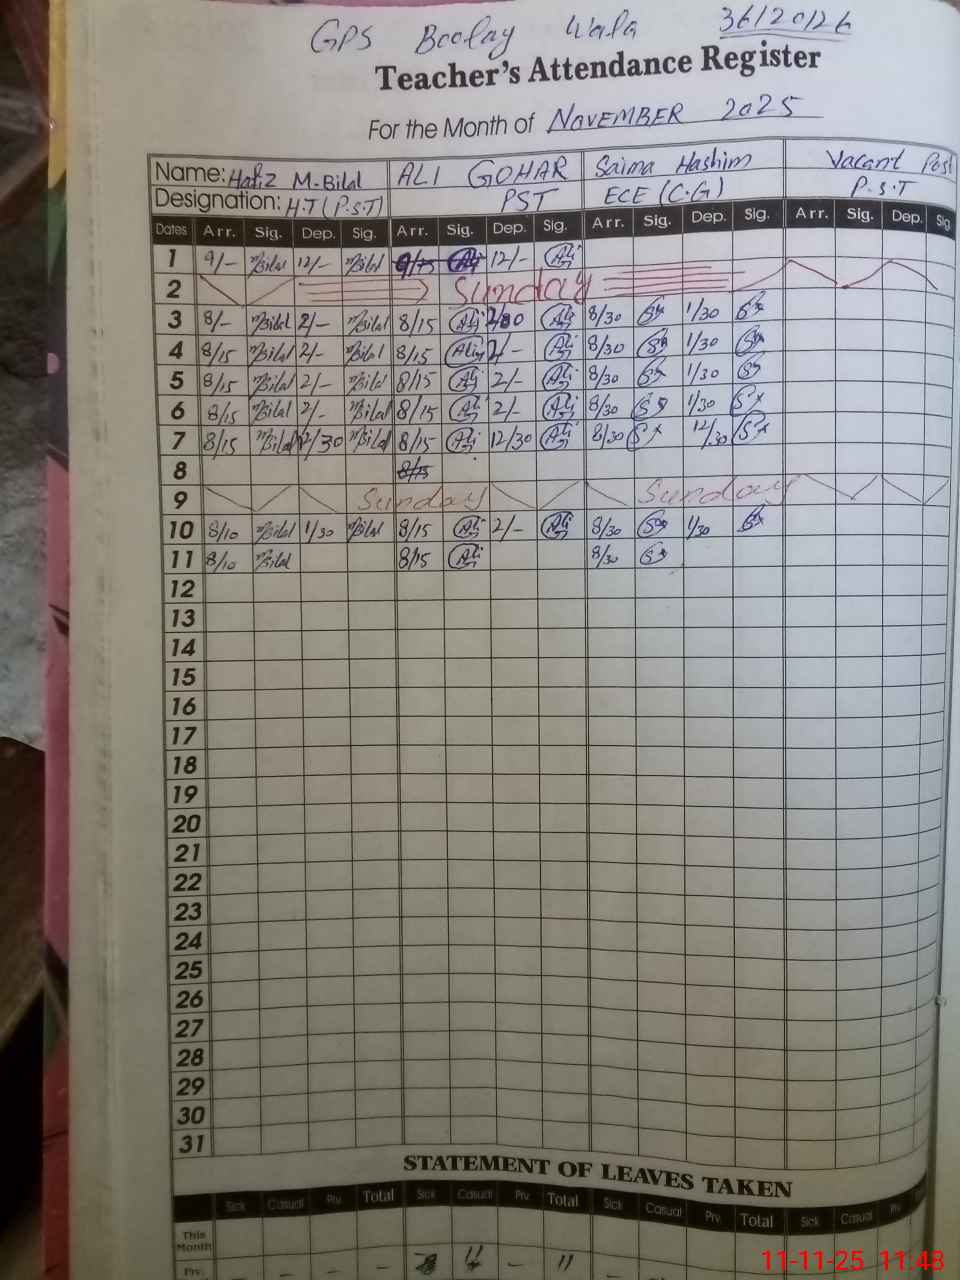 GPS Boolay Wala 36120126
Teacher's Attendance Register
For the Month of NOVEMBER 2025
Name: Hafiz M-Bilal ALI GOHAR Saima Hashim Vacant Post
Designation: H.T (P.S.T) PST ECE (C.G) P.S.T
Dates Arr. Sig. Dep. Sig. Arr. Sig. Dep. Sig. Arr. Sig. Dep. Sig. Arr. Sig. Dep. Sig
1 9/- MBilal 12/- MBilal 9/15 Ali 12/- Ali
2 Sunday
3 8/- MBilal 2/- MBilal 8/15 Ali Ali 8/30 1/30
4 8/15 MBilal 2/- MBilal 8/15 Ali 2/- Ali 8/30 1/30
5 8/15 MBilal 2/- MBilal 8/15 Ali 2/- Ali 8/30 1/30
6 8/15 MBilal 2/- MBilal 8/15 Ali 2/- Ali 8/30 1/30
7 8/15 MBilal 12/30 MBilal 8/15 Ali 12/30 Ali 8/30 12/30
8 8/15
9 Sunday Sunday
10 8/10 MBilal 1/30 MBilal 8/15 Ali 2/- Ali 8/30 1/30
11 8/10 MBilal 8/15 Ali 8/30
12
13
14
15
16
17
18
19
20
21
22
23
24
25
26
27
28
29
30
31
STATEMENT OF LEAVES TAKEN
Sick Casual Prv Total Sick Casual Prv Total Sick Casual Prv Total Sick Casual Prv
This Month
Prv. - - - - 11 - 11 - - -
11-11-25 11:48